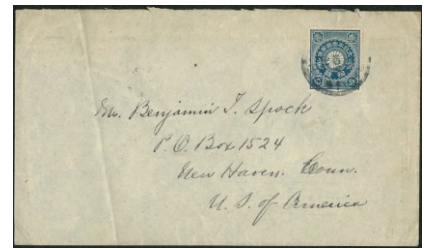 Mr. Benjamin I. Spock
P.O. Box 1524
New Haven, Conn.
U.S. of America